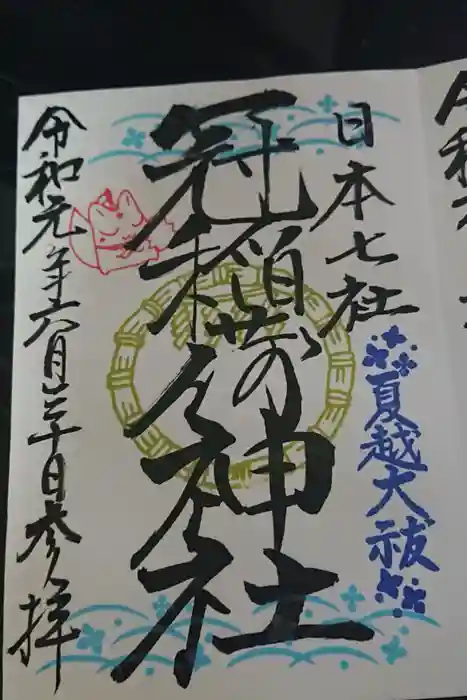 日本七社
夏越大祓
冠稲荷神社
令和元年六月三十日参拝